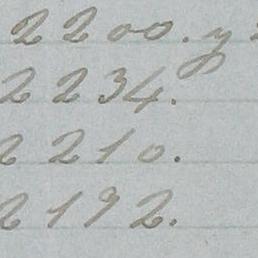 2200. y
2234.
2210.
2192.